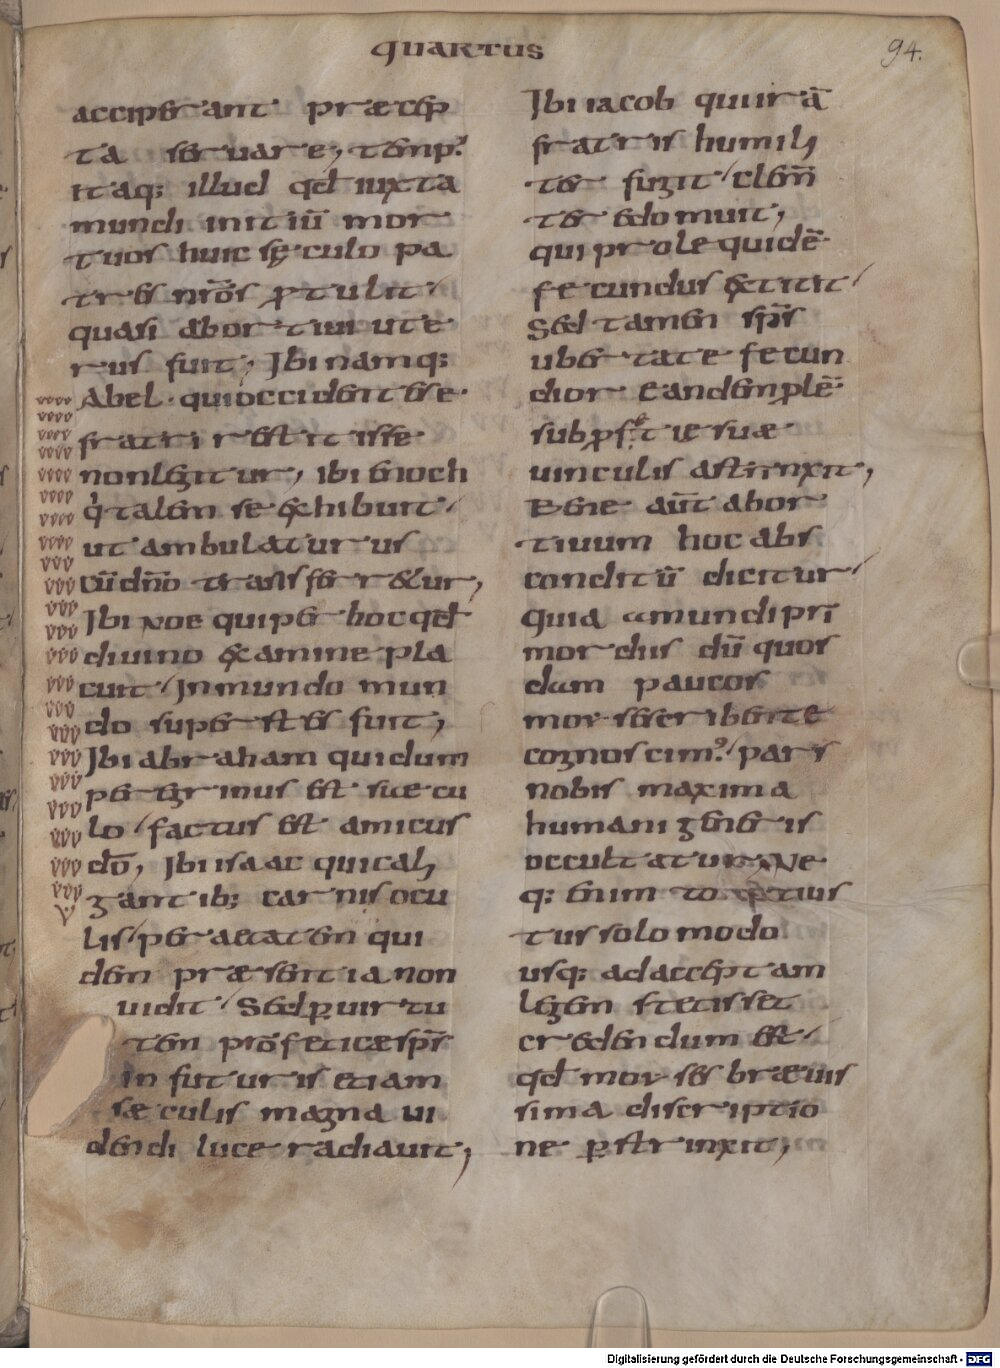 QUARTUS
94.
acciperant præcep
ta servare, tempꝰ
itaq; illud qd̄ iuxta
mundi initiū mor
tuos huic sęculo pa
tres nr̄os ꝓtulit /
quasi abortivi ute
rus fuit, Ibi namq;
Abel · qui occidentese
fratri restitisse ·
non legitur, ibi enoch
q' talem se exhibuit /
ut ambulaturus
cū dn̄o transferretur,
Ibi noe qui per hoc qd̄
divino examine pla
cuit / In mundo mun
do superstes fuit,
Ibi abraham qui dum
peregrinus est suæ cu
lo / factus est amicus
dō, Ibi isaac qui cali
gantib; carnis ocu
lis / per aetatem qui
dem præsentia non
vidit / Sed ꝑ virtu
tem profeticæ sp̄s
in futuris etiam
sæculis magna vi
dendi luce radiavit,
Ibi iacob qui irā
fratris humili
ter fugit / clem̄
ter edomuit,
qui prole quidē
fecundus extitit /
Sed tamen sp̄s
ubertate fecun
dior Eandem ꝓlē
sub ꝓfetie suæ
vinculis astrinxit,
Bene aūt abor
tivum hoc abs
conditū dicitur /
Quia a mundi pri
mordiis dū quos
dam paucos
moyse scribente
cognoscimꝰ / pars
nobis maxima
humani generis
occultatur. Ne
q; enim tot
tus solo modo
usq; ad acceptam
legem stetisset
credendum est /
qd̄ moyses brævis
sima discriptio
ne ꝑstrinxit,
Digitalisierung gefördert durch die Deutsche Forschungsgemeinschaft - DFG